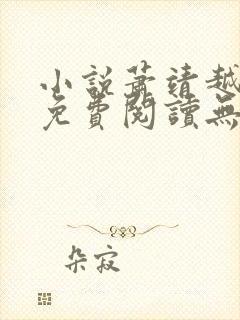 小說蕭靖越
免費閱讀無
朵寂